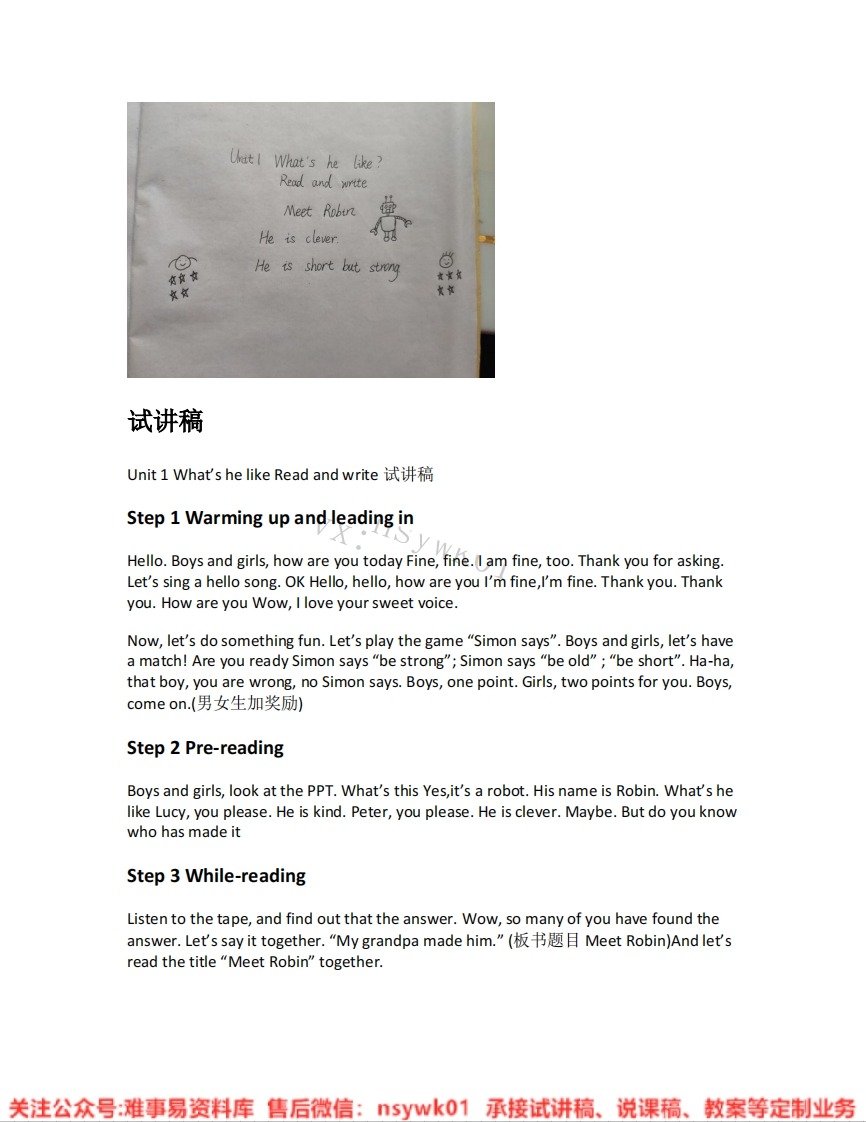 Unit 1 What's he like?
Read and write
Meet Robin
He is clever.
He is short but strong
试讲稿
Unit 1 What’s he like Read and write 试讲稿
Step 1 Warming up and leading in
vx:nsywk01
Hello. Boys and girls, how are you today Fine, fine. I am fine, too. Thank you for asking.
Let’s sing a hello song. OK Hello, hello, how are you I’m fine,I’m fine. Thank you. Thank
you. How are you Wow, I love your sweet voice.
Now, let’s do something fun. Let’s play the game “Simon says”. Boys and girls, let’s have
a match! Are you ready Simon says “be strong”; Simon says “be old” ; “be short”. Ha-ha,
that boy, you are wrong, no Simon says. Boys, one point. Girls, two points for you. Boys,
come on.(男女生加奖励)
Step 2 Pre-reading
Boys and girls, look at the PPT. What’s this Yes,it’s a robot. His name is Robin. What’s he
like Lucy, you please. He is kind. Peter, you please. He is clever. Maybe. But do you know
who has made it
Step 3 While-reading
Listen to the tape, and find out that the answer. Wow, so many of you have found the
answer. Let’s say it together. “My grandpa made him.” (板书题目 Meet Robin)And let’s
read the title “Meet Robin” together.
关注公众号:难事易资料库 售后微信：nsywk01 承接试讲稿、说课稿、教案等定制业务